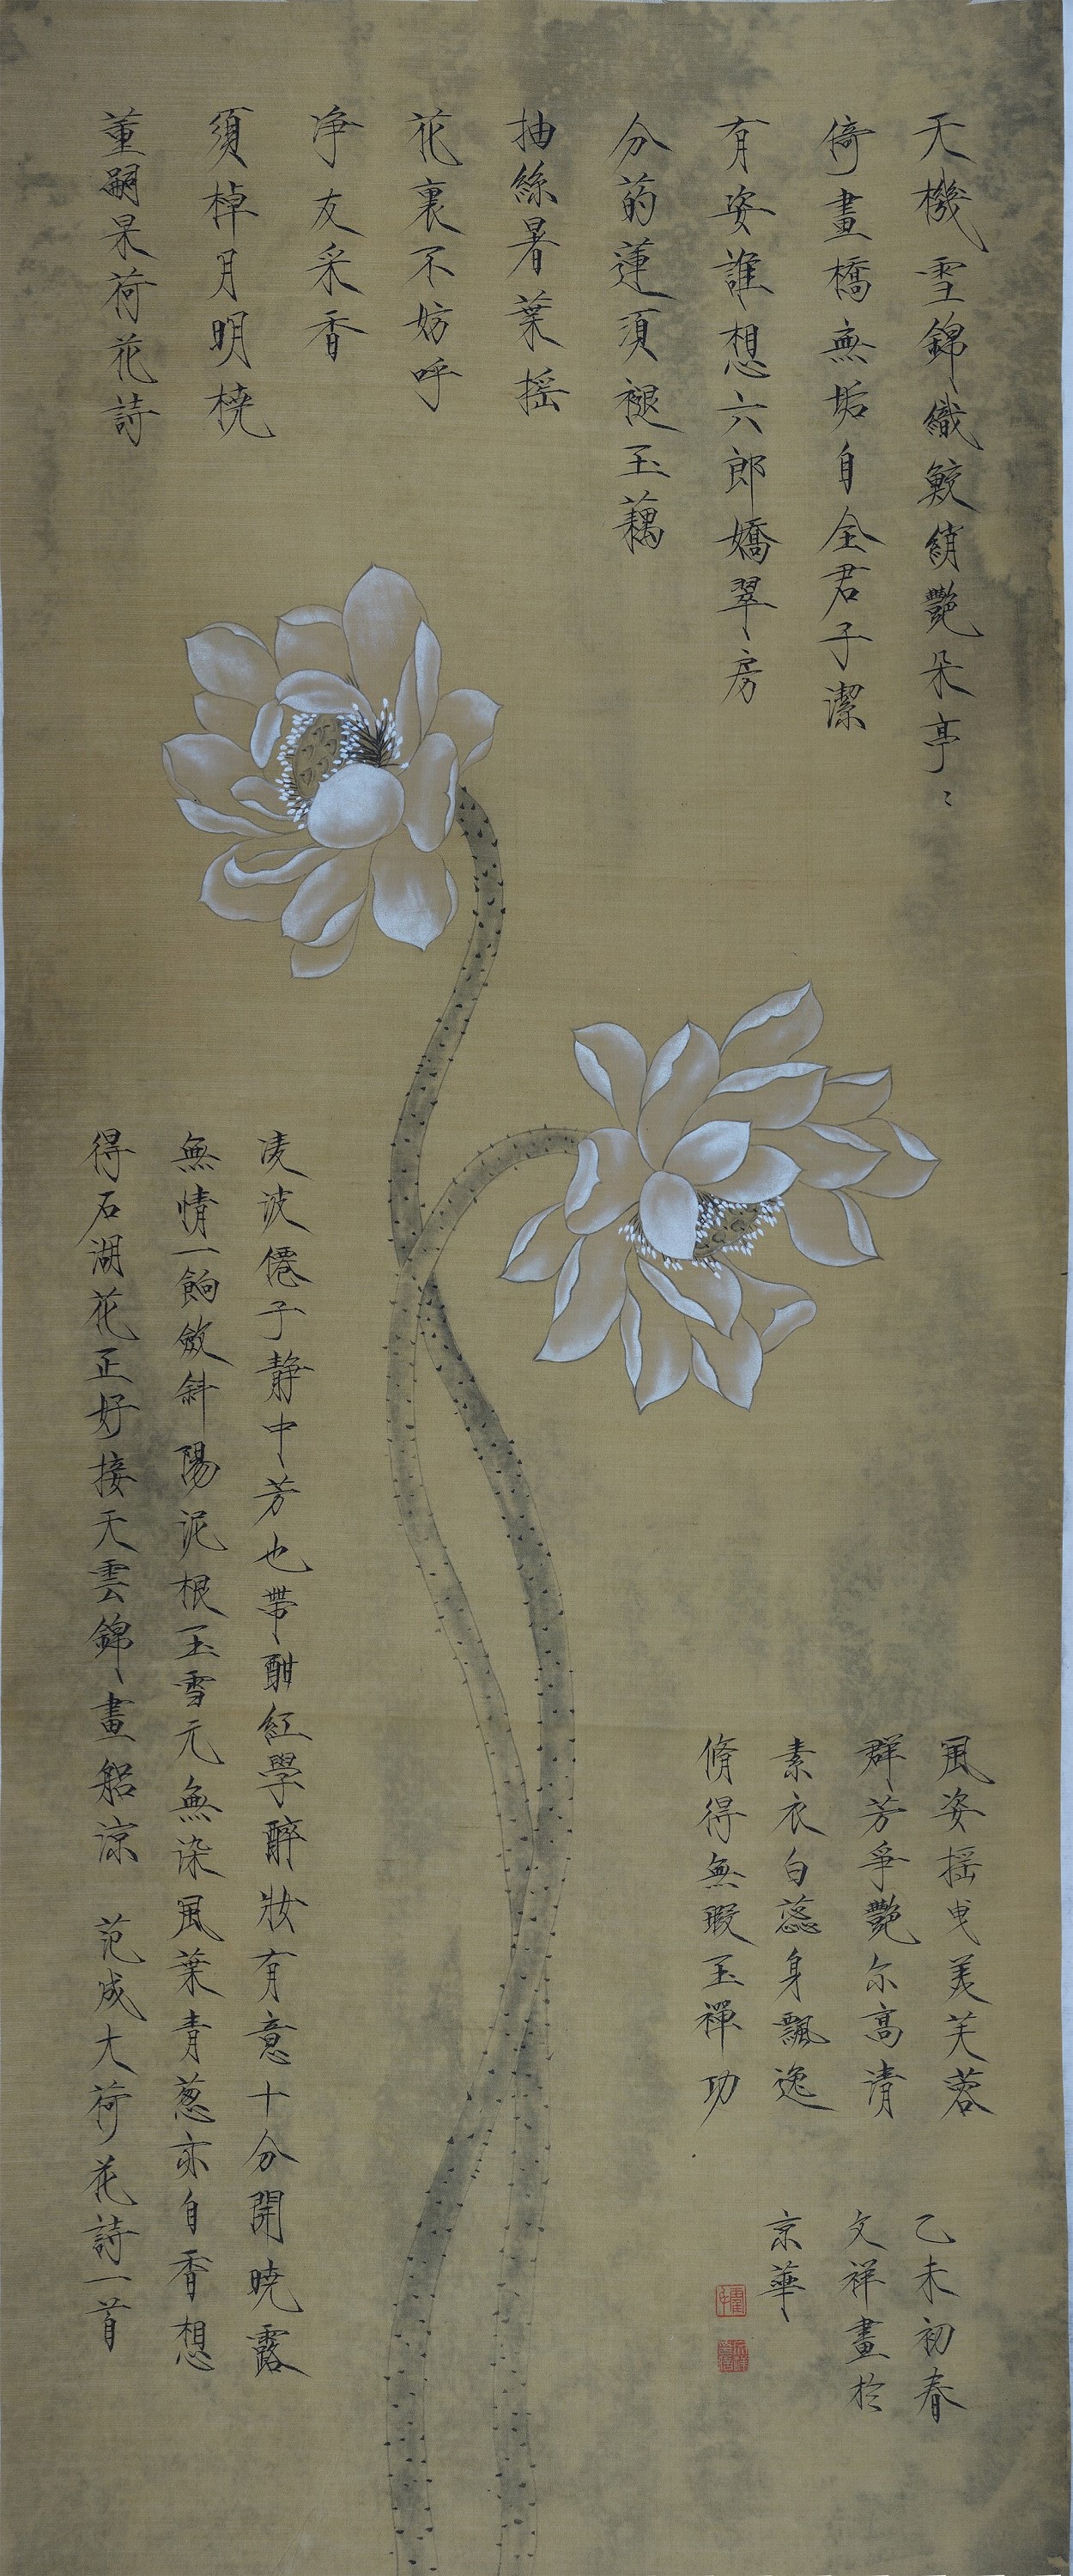 天機雪錦織鮫綃艷朵亭〻
倚畫橋無垢自全君子潔
有姿誰想六郎嬌翠房
分菂蓮須褪玉藕
抽絲暑葉摇
花裏不妨呼
净友采香
須棹月明橈
董嗣杲荷花詩
凌波僊子静中芳也帶酣紅學醉妝有意十分開曉露
無情一餉斂斜陽泥根玉雪元無染風葉青葱亦自香想
得石湖花正好接天雲錦畫船涼 范成大荷花詩一首
風姿摇曳美芙蓉
群芳爭艷尔高清
素衣白蕊身飄逸
脩得無瑕玉禪功
乙未初春
文祥畫於
京華